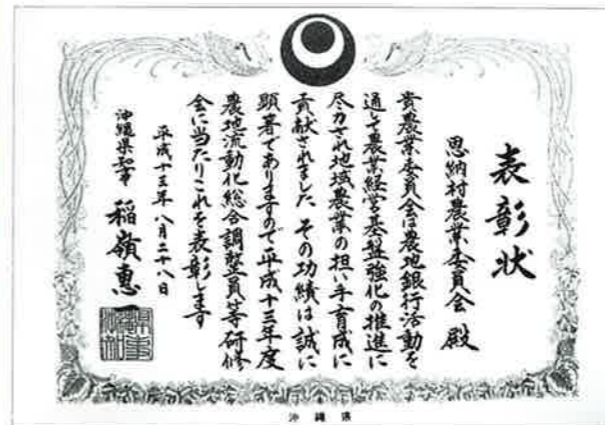 表彰状
恩納村農業委員会 殿
貴農業委員会は農地銀行活動を
通じて農業経営基盤強化の推進に
尽力され地域農業の担い手育成に
貢献されました その功績は誠に
顕著でありますので平成十三年度
農地流動化総合調整員等研修
会に当たりこれを表彰します
平成十三年八月二十八日
沖縄県知事 稲嶺惠一
沖縄県